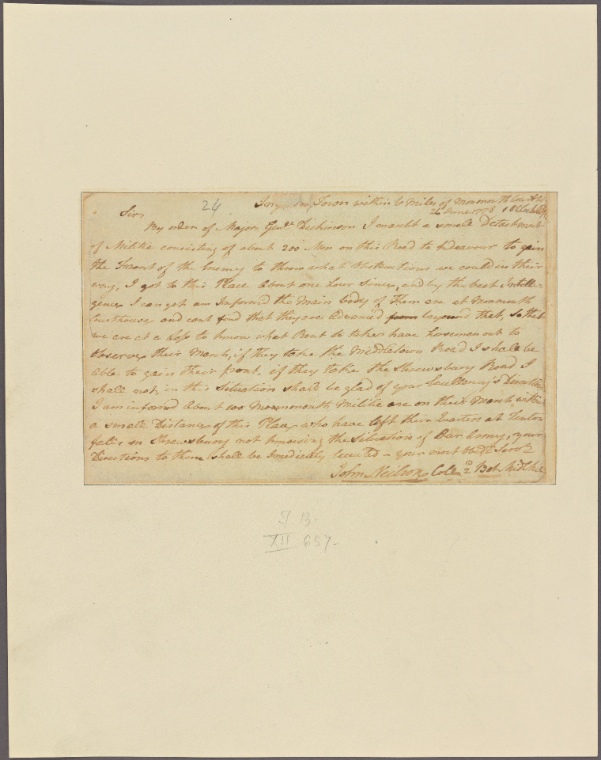 24
Town within 6 Miles of Monmouth
Sir
June 1778
My orders of Major Genll Dickinson I march'd a small Detachment
of Militia consisting of about 200 Men on this Road to Endeavour to gain
the Front of the Enemy to throw what Obstructions we could in their
way, I got to this Place About one hour Since, and by the best Intelli-
gence I can get am Informed the Main body of them are at Monmouth
Courthouse and cant find that they are Advanced from beyond that, So that
we are at a loss to know what Rout to take, have horsemen out to
Observe their March, if they take the Middletown Road I shall be
able to gain their front, if they take the Shrewsbury Road I
shall not, in this Situation shall be glad of your Excellency's
I am informed About 100 Monmouth Militia are on their March within
a small Distance of this Place, who have left their Quarters at
on Shrewsbury not knowing the Situation of Our Army, your
Directions to them shall be Imediately - your most
John Neilson Coln Bat
J B
XII 657-